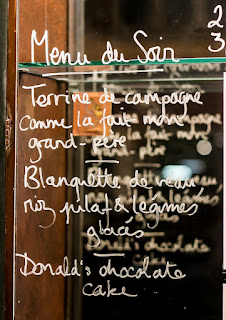 2
3
Menu du Soir
Terrine de campagne
comme la fait mon
grand-père
Blanquette de veau,
riz pilaf & légumes
glacés
Donald's chocolate
cake